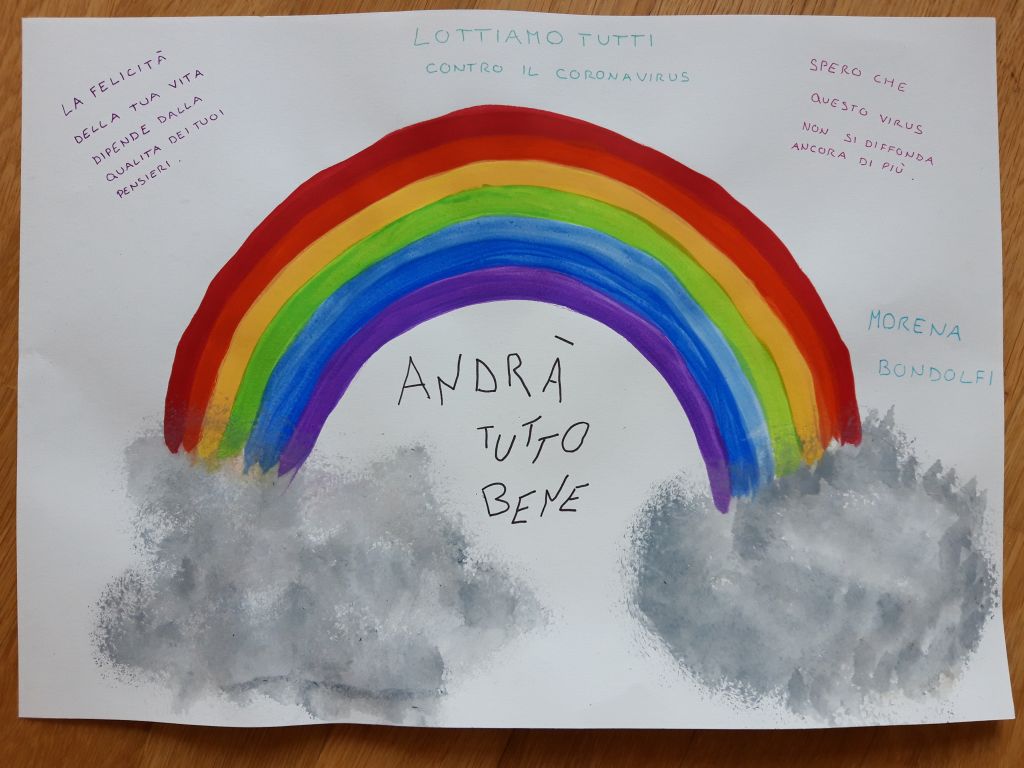 LOTTIAMO TUTTI
CONTRO IL CORONAVIRUS
LA FELICITÀ
DELLA TUA VITA
DIPENDE DALLA
QUALITA DEI TUOI
PENSIERI.
SPERO CHE
QUESTO VIRUS
NON SI DIFFONDA
ANCORA DI PIÙ.
MORENA
BONDOLFI
ANDRÀ
TUTTO
BENE